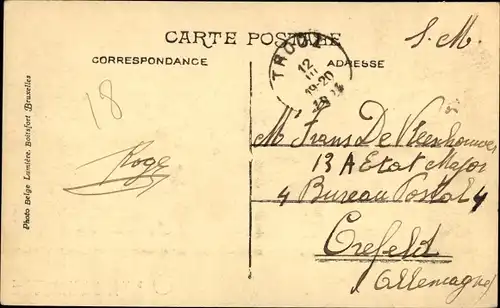 CARTE POSTALE
S. M.
CORRESPONDANCE
ADRESSE
TROOZ
12
III
19-20
18
Photo Belge Lumière, Boitsfort (Bruxelles)
Mr Frans De
13 A Etat Major
4 Bureau Postal 4
Crefeld
Allemagne